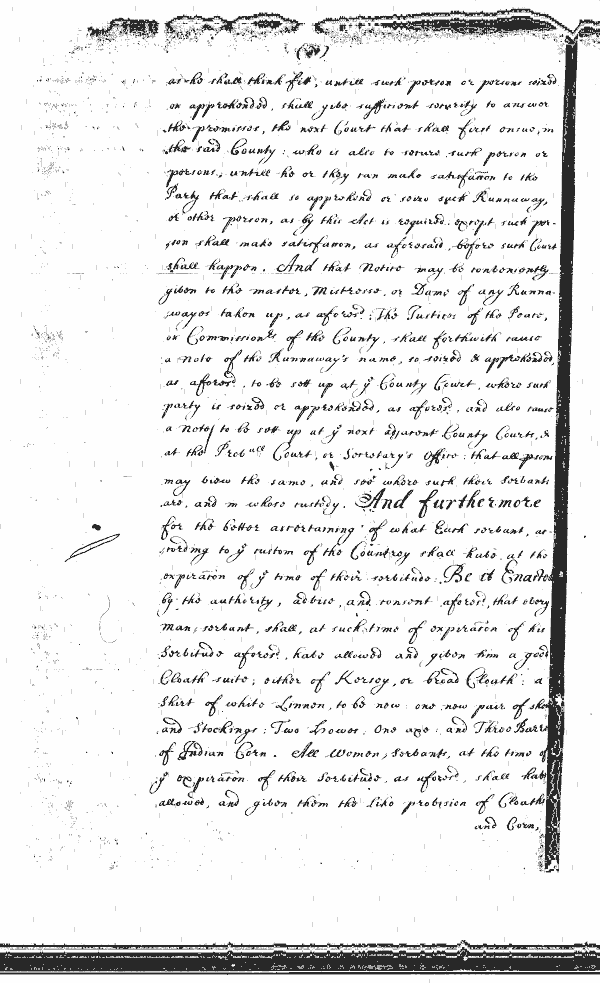 as he shall think fitt, untill such person or persons seized
or apprehended, shall give sufficient security to answer
the premisses, the next Court that shall first ensue, in
the said County: who is also to secure such person or
persons, untill he or they can make satisfaction to the
Party that shall so apprehend or seize such Runnaway,
or other person, as by this Act is required. except such per-
son shall make satisfaction, as aforesaid, before such Court
shall happen. And that Notice may be conveniently
given to the master, Mistresse, or Dame of any Runna-
wayes taken up, as afores:d; The Justices of the Peace,
or Commission:rs of the County, shall forthwith cause
a note of the Runnaway's name, so seized & apprehended,
as afores:d, to be sett up at ye County Court, where such
party is seized or apprehended, as afores:d, and also cause
a note to be sett up at ye next adjacent County Courts, &
at the Prob:all Court, or Secretary's Office: that all psons
may view the same, and see where such their Servants
are, and in whose custody. And furthermore
for the better ascertaining of what Each servant, ac-
cording to ye custom of the Countrey shall have, at the
expiracon of ye time of their servitude; Be it Enacted
by the authority, advise, and consent afores:d, that every
man, servant, shall, at such time of expiracon of his
Servitude afores:d, have allowed and given him a good
Cloath suite; either of Kersey, or broad Cloath: a
Shirt of white Linnen, to be new: one new pair of shoes
and Stockings: Two Howes: One axe: and Three Barrs
of Indian Corn. All Women, Servants, at the time of
ye expiracon of their Servitude, as afores:d, shall have
allowed, and given them the like provision of Cloaths
and Corn,